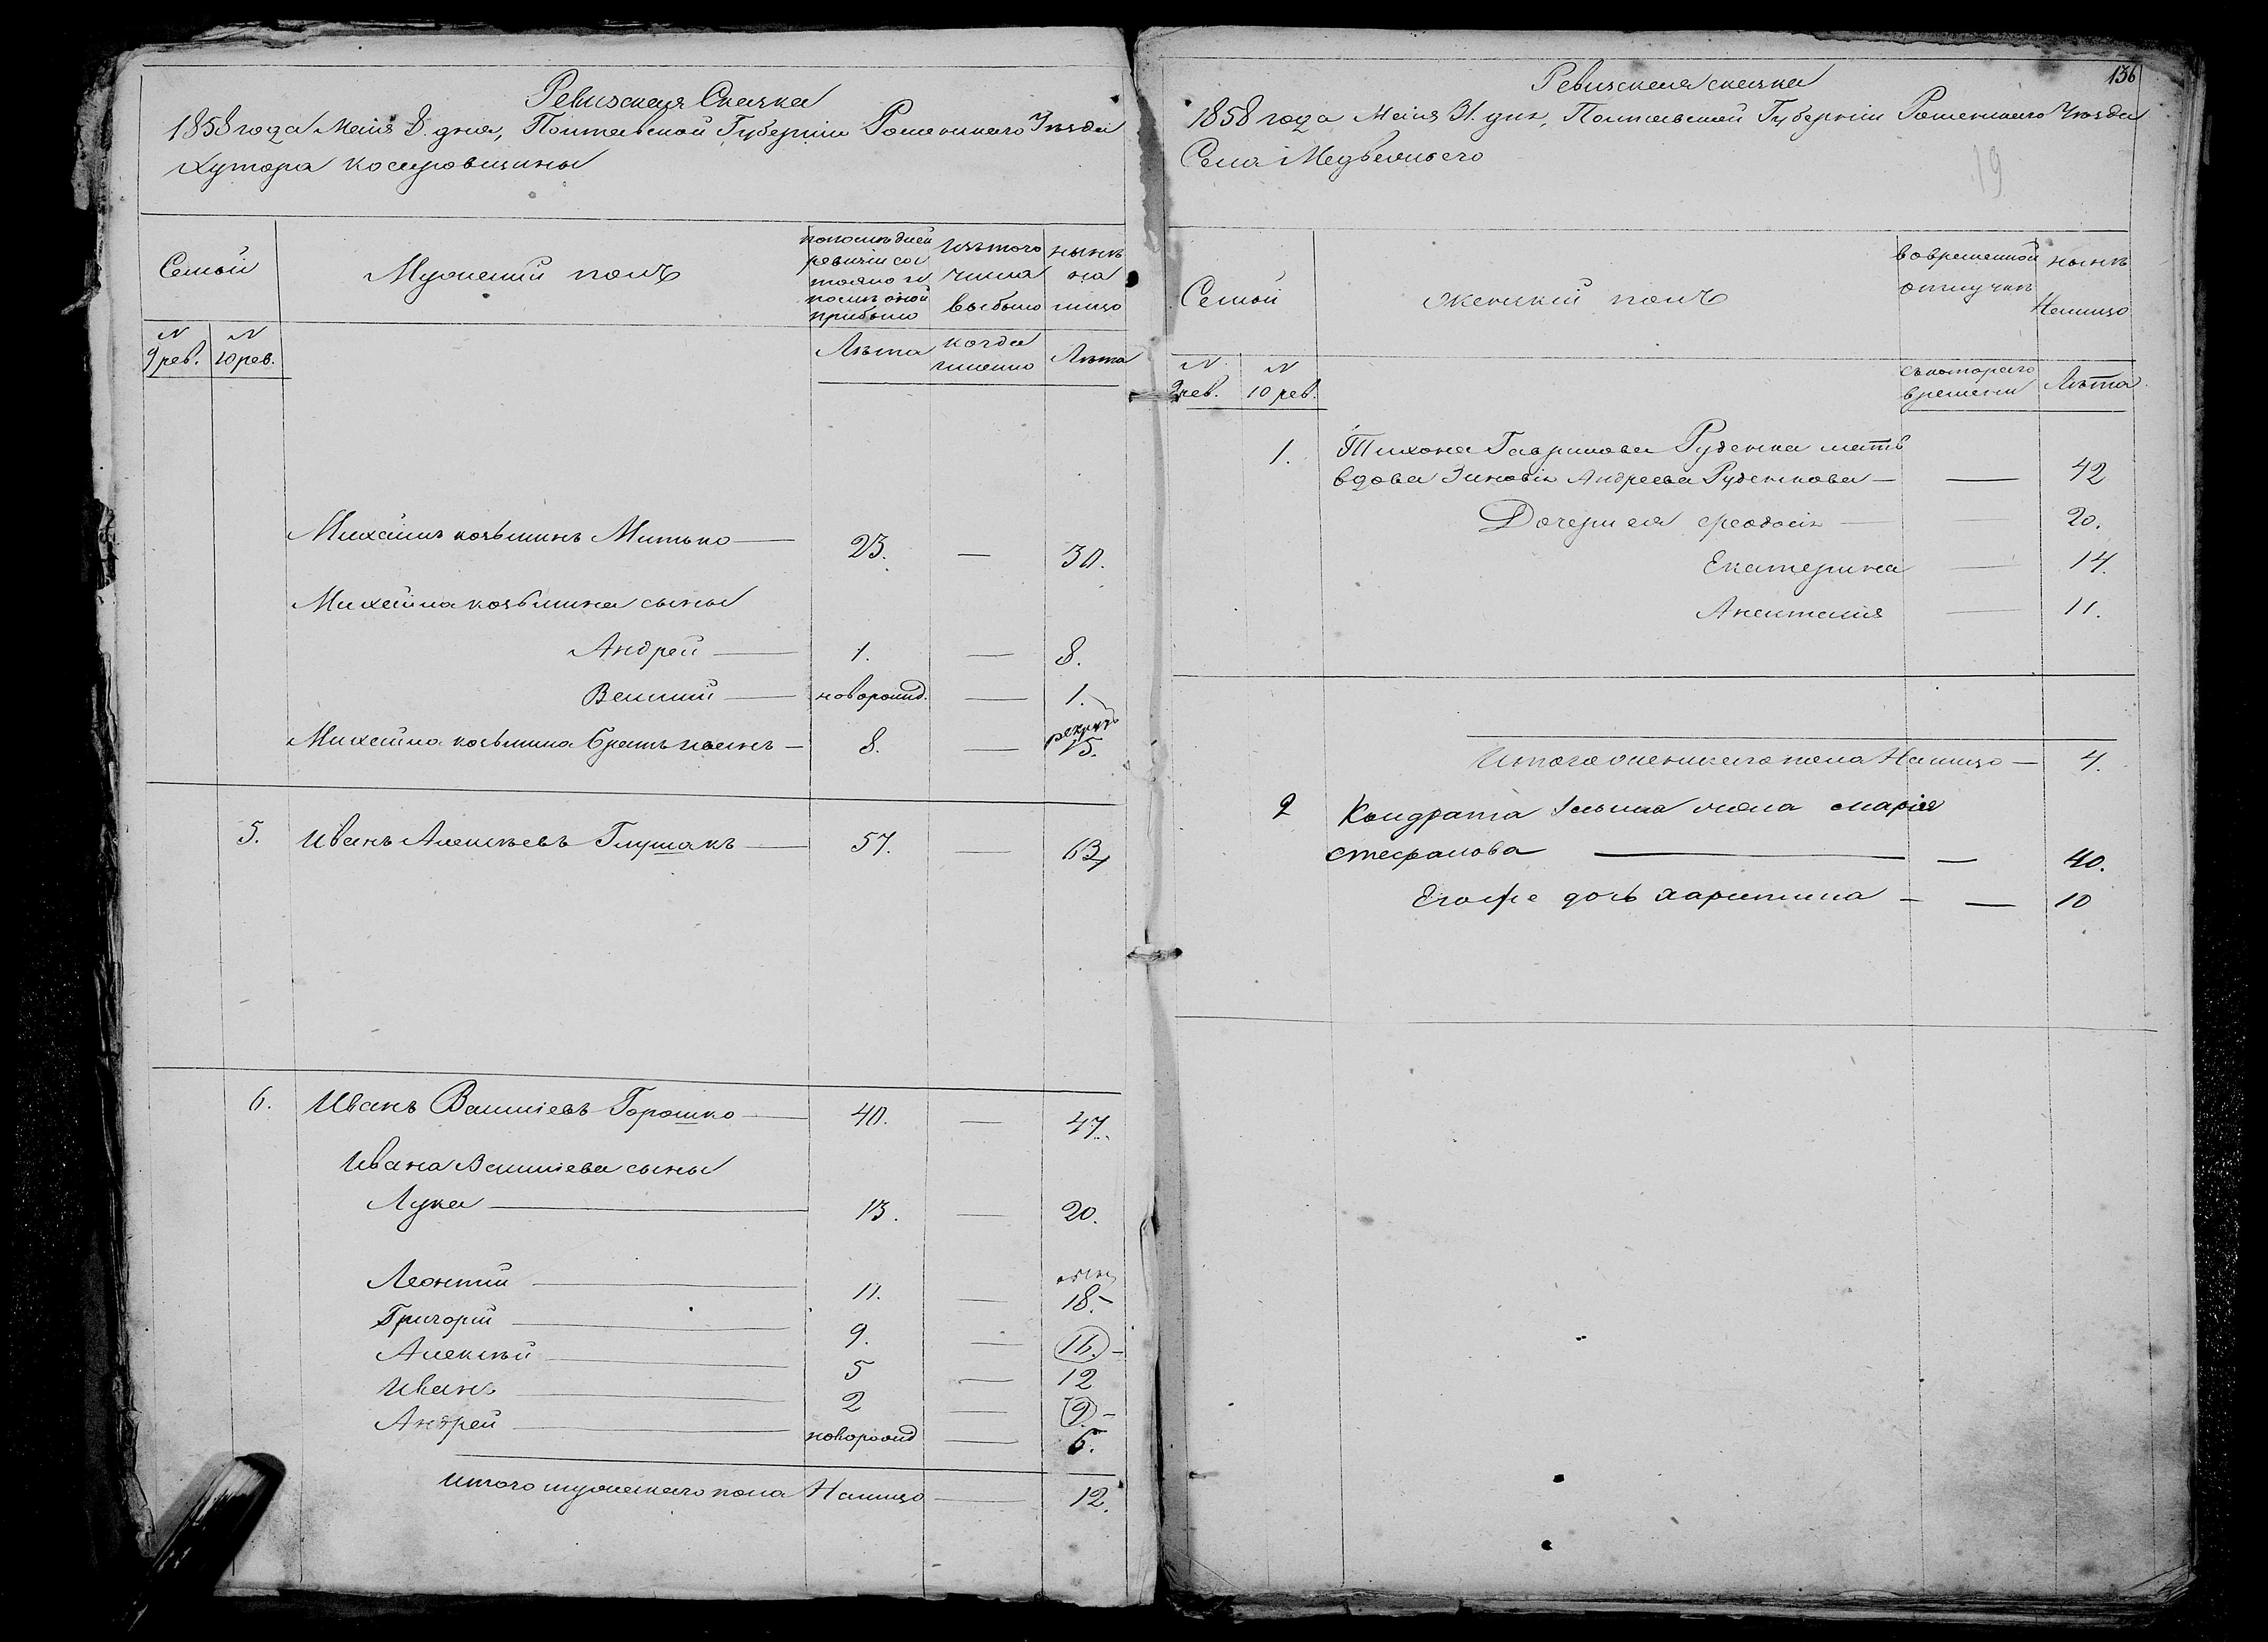 Ревизская Сказка
1858 года Маія 8. дня, Полтавской Губерніи Роменскаго Уѣзда
Хутора
Семьи
Мужескій полъ
по послѣдней
ревизіи со
стояло и
послѣ оной
прибыло
Изъ того
числа
выбыло
нынѣ
на
лицо
N
9 рев.
N
10 рев.
Лѣта
когда
именно
Лѣта
Михаилъ козьминъ Митько — 23. — 30.
Михаила козьмина сыны
Андрей — 1. — 8.
Василий — новорожд. — 1.
рекрутъ
Михаила козьмина братъ — 8. — 15.
5. Иванъ Алексѣевъ Глушакъ — 57. — 63
6. Иванъ Василіевъ Горошко — 40. — 47.
Ивана Василіева сыны
Лука — 13. — 20.
Леонтий — 11. — 18. –
Григорій — 9. — 16. –
Алексѣй — 5 — 12
Иванъ — 2 — 9. –
Андрей — новорожд — 6.
Итого мужескаго пола Налицо — 12.
136
Ревизская сказка
1858 года Маія 31. дня, Полтавской Губерніи Роменскаго Уѣзда
Села Медвежьего
19
Семьи
женскій полъ
во временной
отлучкѣ
нынѣ
Налицо
N
9 рев.
N
10 рев.
съ котораго
времени
Лѣта
1. Тихона Гаврилова Руденка мать
вдова Зиновія Андреева Руденкова — — 42
Дочери ея феодосія — 20.
Екатерина — 14.
Анастасия — 11.
Итого женскаго пола Налицо — 4.
2 Кондрата жена марія
стефанова — — 40.
Егоже дочь харитина – — 10